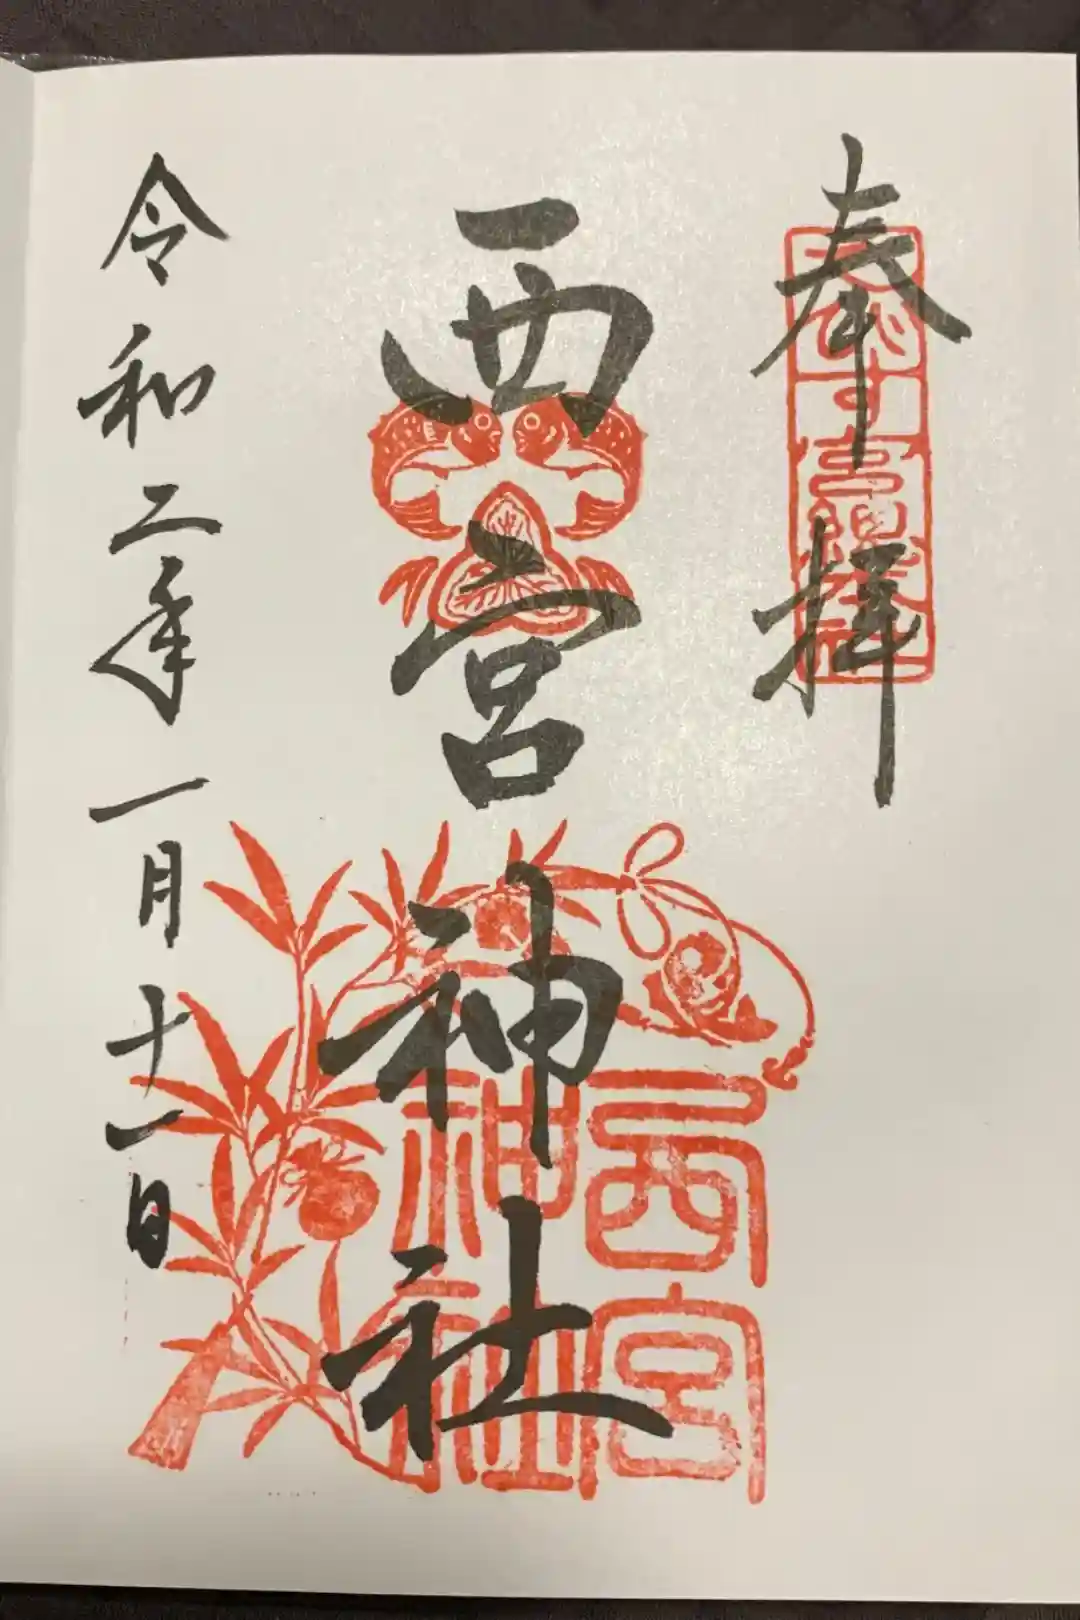 奉拝
西宮神社
令和二年一月十一日
西宮
神社